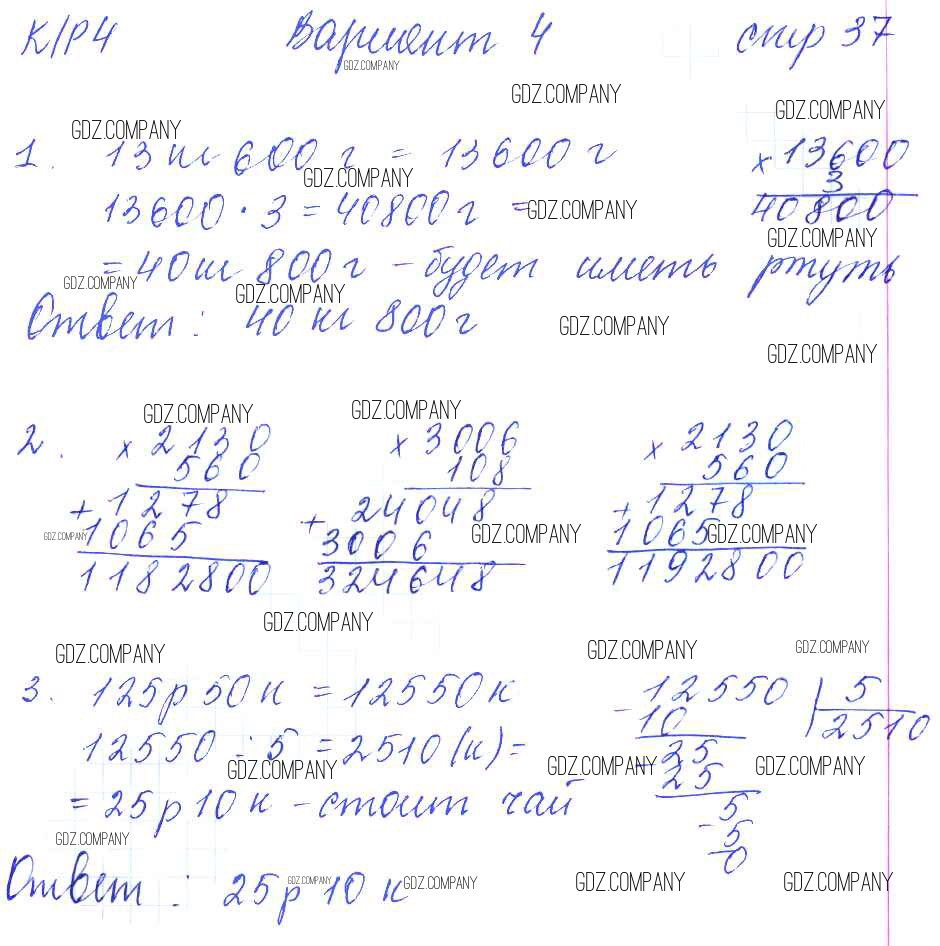 К/Р4 Вариант 4 стр 37
GDZ.COMPANY
GDZ.COMPANY
GDZ.COMPANY
GDZ.COMPANY
1. 13 кг 600 г = 13600 г × 13600
GDZ.COMPANY 3
13600 · 3 = 40800 г = GDZ.COMPANY 40800
GDZ.COMPANY
= 40 кг 800 г – будет иметь ртуть
GDZ.COMPANY GDZ.COMPANY
Ответ: 40 кг 800 г GDZ.COMPANY
GDZ.COMPANY
GDZ.COMPANY GDZ.COMPANY
2. × 2130 × 3006 × 2130
560 108 560
+ 1278 + 24048 + 1278
GDZ.COMPANY 1065 3006 GDZ.COMPANY 1065 GDZ.COMPANY
1182800 324648 1192800
GDZ.COMPANY
GDZ.COMPANY GDZ.COMPANY GDZ.COMPANY
3. 125р 50 к = 12550 к - 12550 | 5
10 2510
12550 : 5 = 2510 (к) = - 25
GDZ.COMPANY GDZ.COMPANY 25 GDZ.COMPANY
= 25р 10 к – стоит чай - 5
GDZ.COMPANY 5
0
Ответ: 25р 10 к GDZ.COMPANY GDZ.COMPANY GDZ.COMPANY GDZ.COMPANY